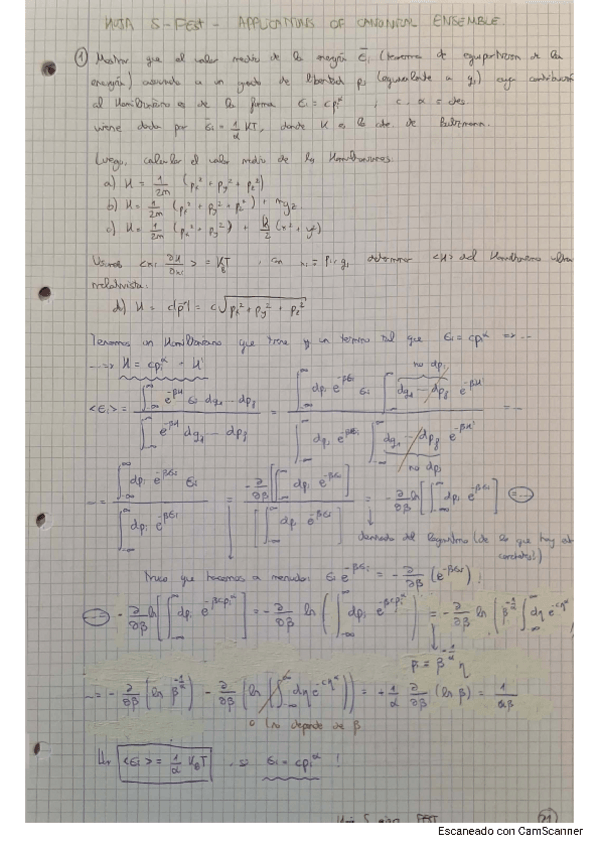 HOJA 5 - FEST - APPLICATIONS OF CANONICAL ENSEMBLE.
① Mostrar que el valor medio de la energía ε̄ᵢ (teorema de equipartición de la
energía) asociado a un grado de libertad pᵢ (equivalente a qᵢ) cuya contribución
al Hamiltoniano es de la forma εᵢ = cpᵢ^α , c, α = ctes.
viene dado por ε̄ᵢ = 1/α KT, donde K es la cte. de Boltzmann.
Luego, calcular el valor medio de los Hamiltonianos.
a) H = 1/2m (px² + py² + pz²)
b) H = 1/2m (px² + py² + pz²) + mgz
c) H = 1/2m (px² + py²) + k/2 (x² + y²)
Usamos <xᵢ ∂H/∂xᵢ> = K_BT , con xᵢ = pᵢ, qᵢ determinar <H> del Hamiltoniano ultra
relativista.
d) H = c|p⃗| = c√(px² + py² + pz²)
Tenemos un Hamiltoniano que tiene un termino tal que εᵢ = cpᵢ^α => ...
...=> H = cpᵢ^α + H'
no dpᵢ
<εᵢ> = ∫_{-∞}^{∞} e^{-βH} εᵢ dq₁ — dp_f / ∫_{-∞}^{∞} e^{-βH} dq₁ — dp_f = ∫_{-∞}^{∞} dpᵢ e^{-βεᵢ} εᵢ ∫_{-∞}^{∞} dq₁ — dp_f e^{-βH'} / ∫_{-∞}^{∞} dpᵢ e^{-βεᵢ} ∫_{-∞}^{∞} dq₁ — dp_f e^{-βH'} = ...
no dpᵢ
... = ∫_{-∞}^{∞} dpᵢ e^{-βεᵢ} εᵢ / ∫_{-∞}^{∞} dpᵢ e^{-βεᵢ} = -∂/∂β [∫_{-∞}^{∞} dpᵢ e^{-βεᵢ}] / [∫_{-∞}^{∞} dpᵢ e^{-βεᵢ}] = -∂/∂β ln [∫_{-∞}^{∞} dpᵢ e^{-βεᵢ}] =...
derivada del logaritmo (de lo que hay en
corchetes!)
Truco que hacemos a menudo: εᵢ e^{-βεᵢ} = -∂/∂β (e^{-βεᵢ}) !
... -∂/∂β ln [∫_{-∞}^{∞} dpᵢ e^{-βcpᵢ^α}] = -∂/∂β ln (∫_{-∞}^{∞} dpᵢ e^{-βcpᵢ^α}) = -∂/∂β ln (β^{-1/α} ∫_{-∞}^{∞} dη e^{-cη^α}
β^{-1/α} η
... = -∂/∂β (ln β^{-1/α}) - ∂/∂β (ln (∫_{-∞}^{∞} dη e^{-cη^α})) = +1/α ∂/∂β (ln β) = 1/αβ
0 (no depende de β
<εᵢ> = 1/α K_BT , si εᵢ = cpᵢ^α !
Escaneado con CamScanner